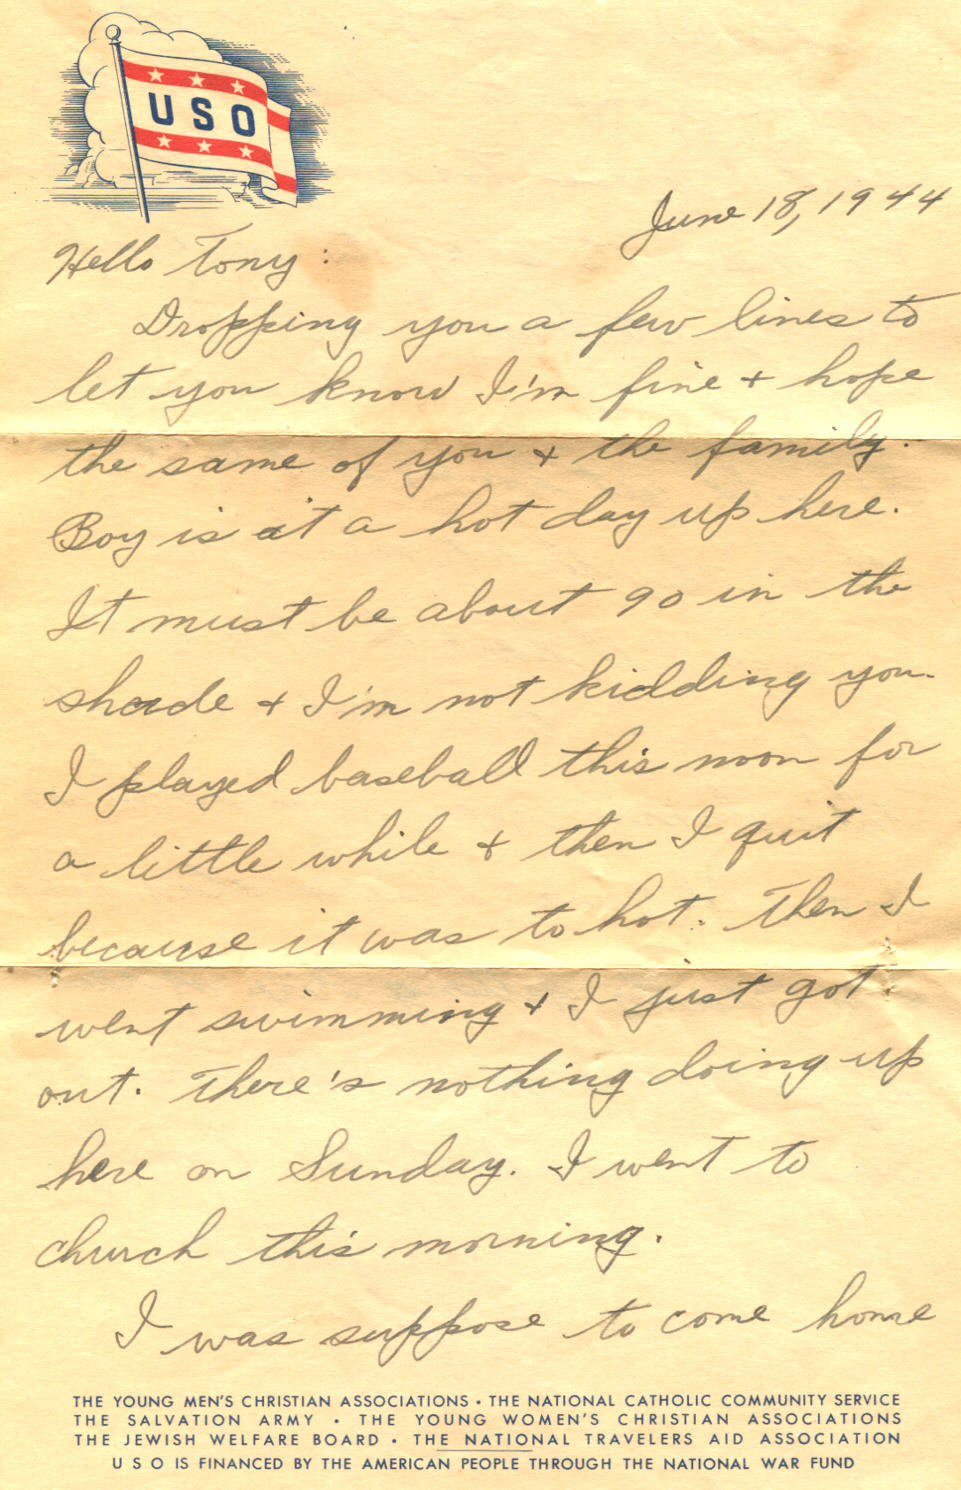 USO
June 18, 1944
Hello Tony :
Dropping you a few lines to
let you know I'm fine + hope
the same of you + the family.
Boy is it a hot day up here.
It must be about 90 in the
shade + I'm not kidding you.
I played baseball this noon for
a little while + then I quit
because it was to hot. Then I
went swimming + I just got
out. There's nothing doing up
here on Sunday. I went to
church this morning.
I was suppose to come home
THE YOUNG MEN'S CHRISTIAN ASSOCIATIONS • THE NATIONAL CATHOLIC COMMUNITY SERVICE
THE SALVATION ARMY • THE YOUNG WOMEN'S CHRISTIAN ASSOCIATIONS
THE JEWISH WELFARE BOARD • THE NATIONAL TRAVELERS AID ASSOCIATION
USO IS FINANCED BY THE AMERICAN PEOPLE THROUGH THE NATIONAL WAR FUND